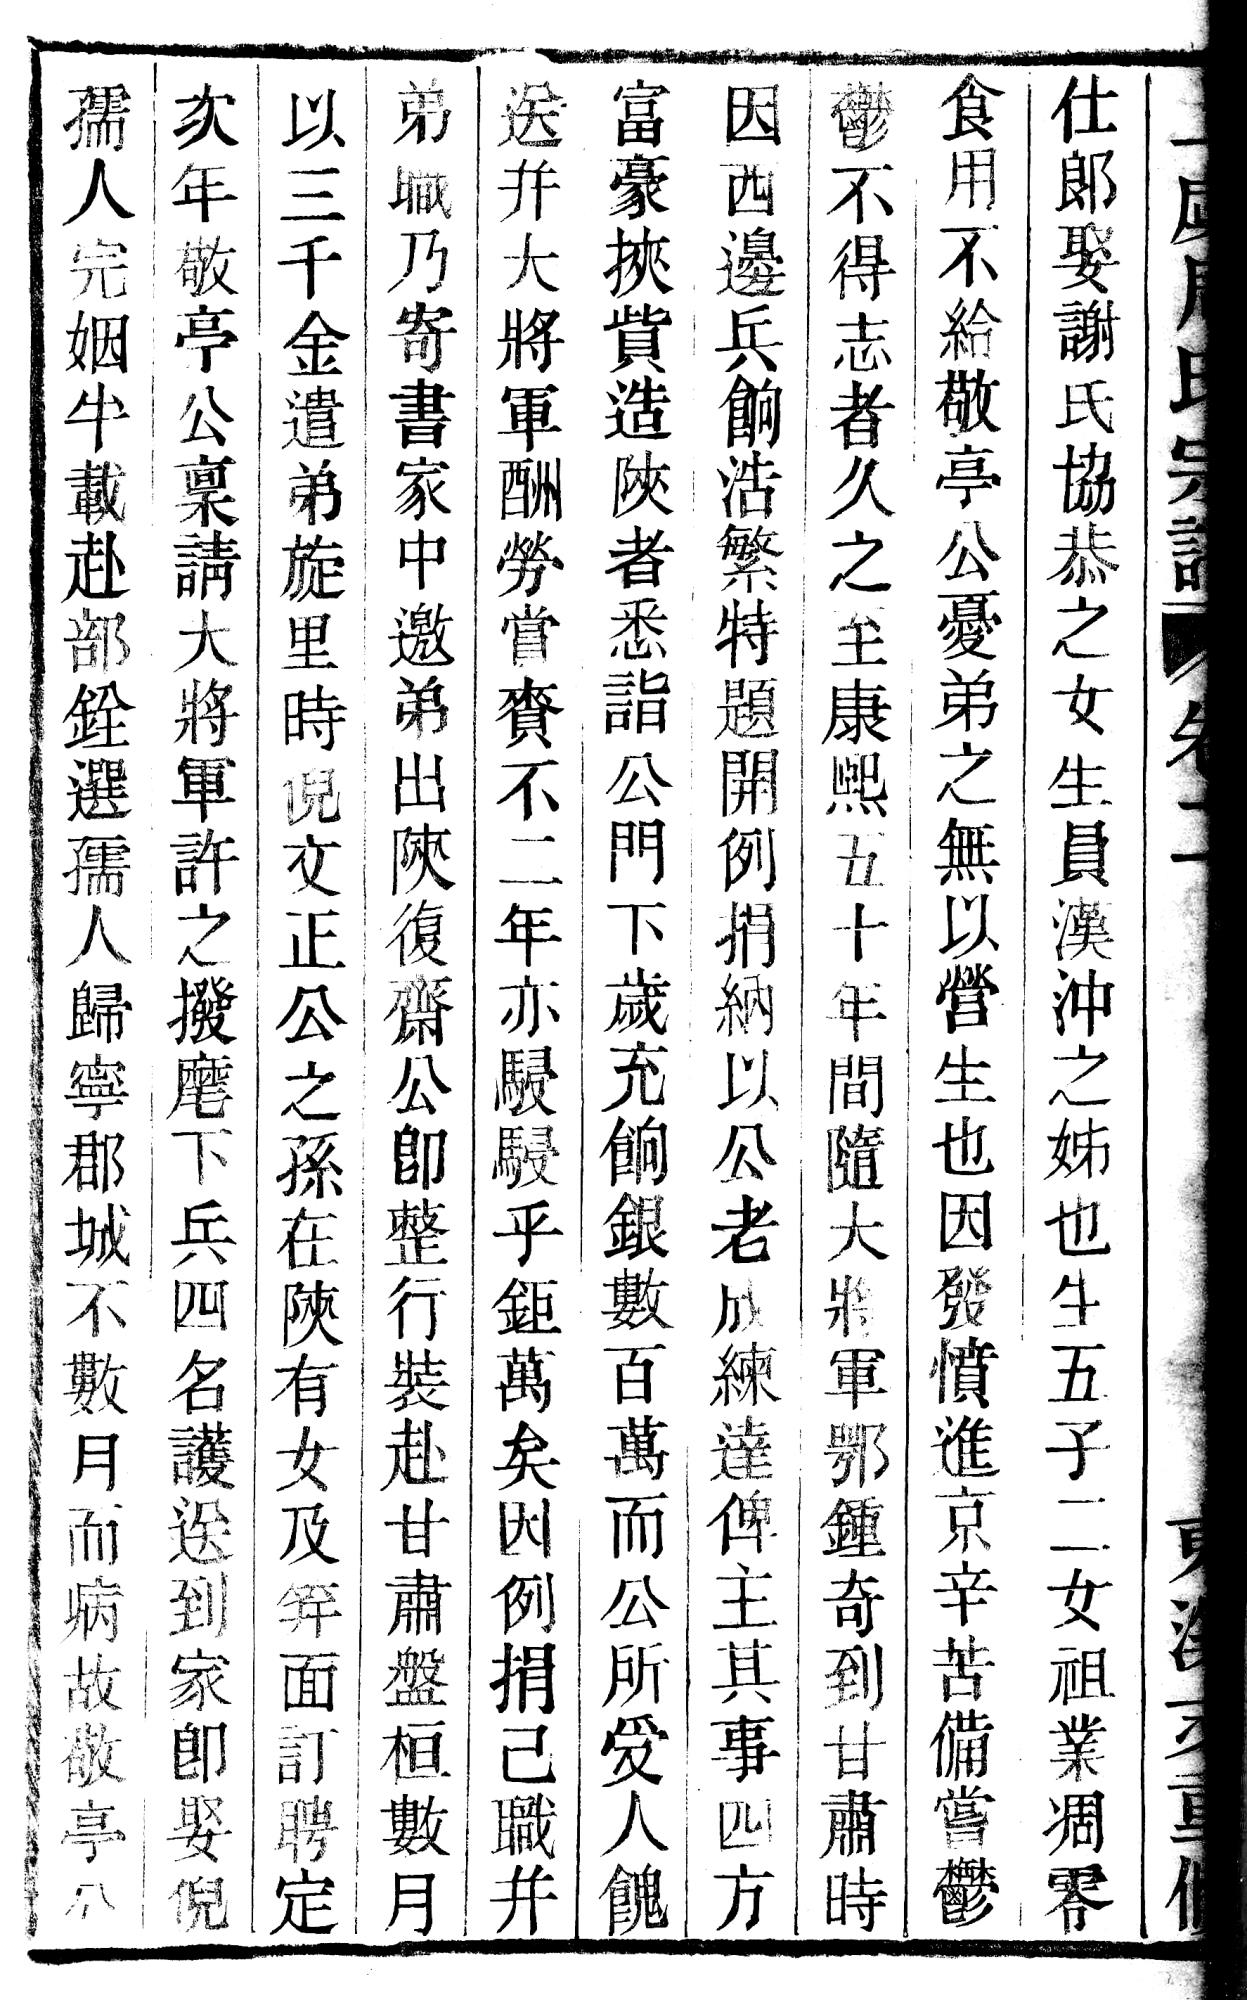 氏宗譜 卷 重
仕郎娶謝氏協恭之女生員漢沖之姊也生五子二女祖業凋零
食用不給敬亭公憂弟之無以營生也因發憤進京辛苦備嘗鬱
鬱不得志者久之至康熙五十年間隨大將軍鄂鍾奇到甘肅時
因西邊兵餉浩繁特題開例捐納以公老成練達俾主其事四方
富豪挾貲造陝者悉詣公門下歲充餉銀數百萬而公所受人餽
送并大將軍酬勞嘗賚不二年亦駸駸乎鉅萬矣因例捐己職并
弟職乃寄書家中邀弟出陝復齋公卽整行裝赴甘肅盤桓數月
以三千金遣弟旋里時倪文正公之孫在陝有女及笄面訂聘定
次年敬亭公稟請大將軍許之撥麾下兵四名護送到家卽娶倪
孺人完姻半載赴部銓選孺人歸寧郡城不數月而病故敬亭公